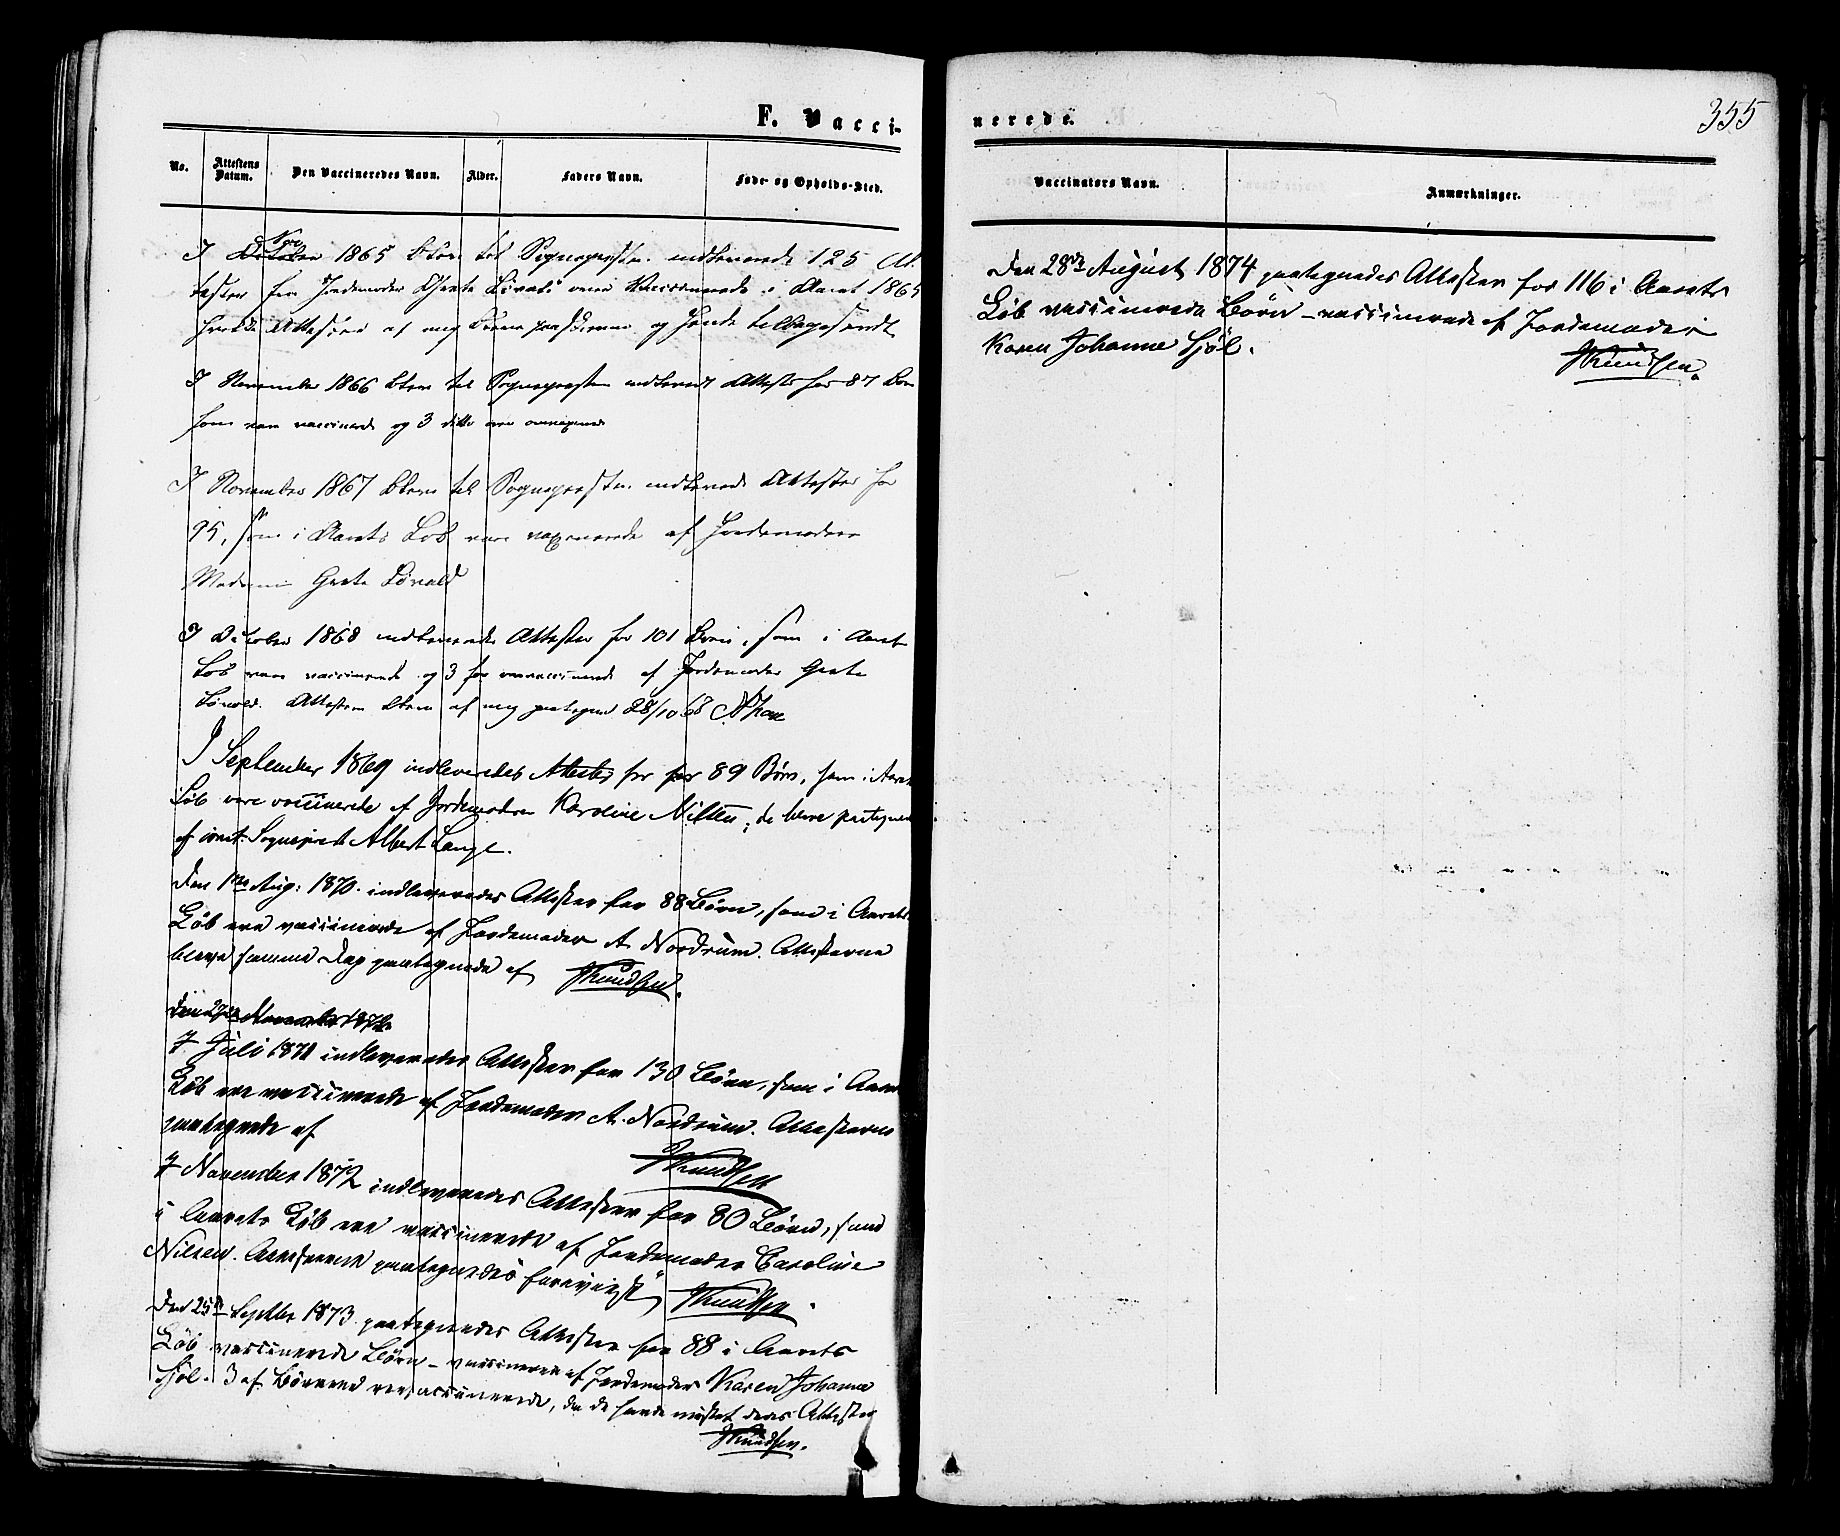 F. Vacci-
No.
Attestens Datum.
Den Vaccineredes Navn.
Alder.
Faders Navn.
Føde- og Opholds-Sted.
I October Nov 1865 blev til Sognepresten indleverede 125 At-
tester fra Jordemoder Grete vaccinerede i Aaret 1865
hvilke Attester af mig bleve og hende tilbagesendt
I November 1866 blev til Sognepresten indleveret Attester for 87 Børn
som vare vaccinerede og 3 ditto
I November 1867 blev til Sognepresten indleverede Attester for
95, som i Aarets Løb vare vaxinerede af Jordemoder
Grete Løvald
I October 1868 indleverede Attester for 101 Børn, som i Aarets
Løb vare vaccinerede og 3 for revaccinerede af Jordemoder Grete
Løvald. Attesterne bleve af mig paategnet 28/10 68
I September 1869 indleveredes Attester for for 89 Børn, som i Aarets
Løb vare vaccinerede af Jordemoderen Karoline Nilsen; de bleve paategnede
af const. Sogneprest Albert Lange.
Den 1ste Aug: 1870 indleveredes Attester for 88 Børn, som i Aarets
Løb ere vaccinerede af Jordemoder A. Nordrum. Attesterne
bleve samme Dag paategnede af JKnudsen.
Den 27de November 1872
I Juli 1871 indleveredes Attester for 130 Børn, som i Aarets
Løb ere vaccinerede af Jordemoder A. Nordrum. Attesterne
paategnede af
JKnudsen
I November 1872 indleveredes Attester for 80 Børn, som
i Aarets Løb ere vaccinerede af Jordemoder Caroline
Nilsen. Attesterne paategnedes JKnudsen.
Den 25de Septbr 1873 paategnedes Attester for 88 i Aarets
Løb vaccinerede Børn – vaccinerede af Jordemoder Karen Johanne
Sjøl. 3 af Børnene revaccinerede, da de havde mistet deres Attester
JKnudsen.
nerede.
355
Vaccinators Navn.
Anmærkninger.
Den 28de August 1874 paategnedes Attester for 116 i Aarets
Løb vaccinerede Børn – vaccinerede af Jordemoder
Karen Johanne Sjøl.
JKnudsen.